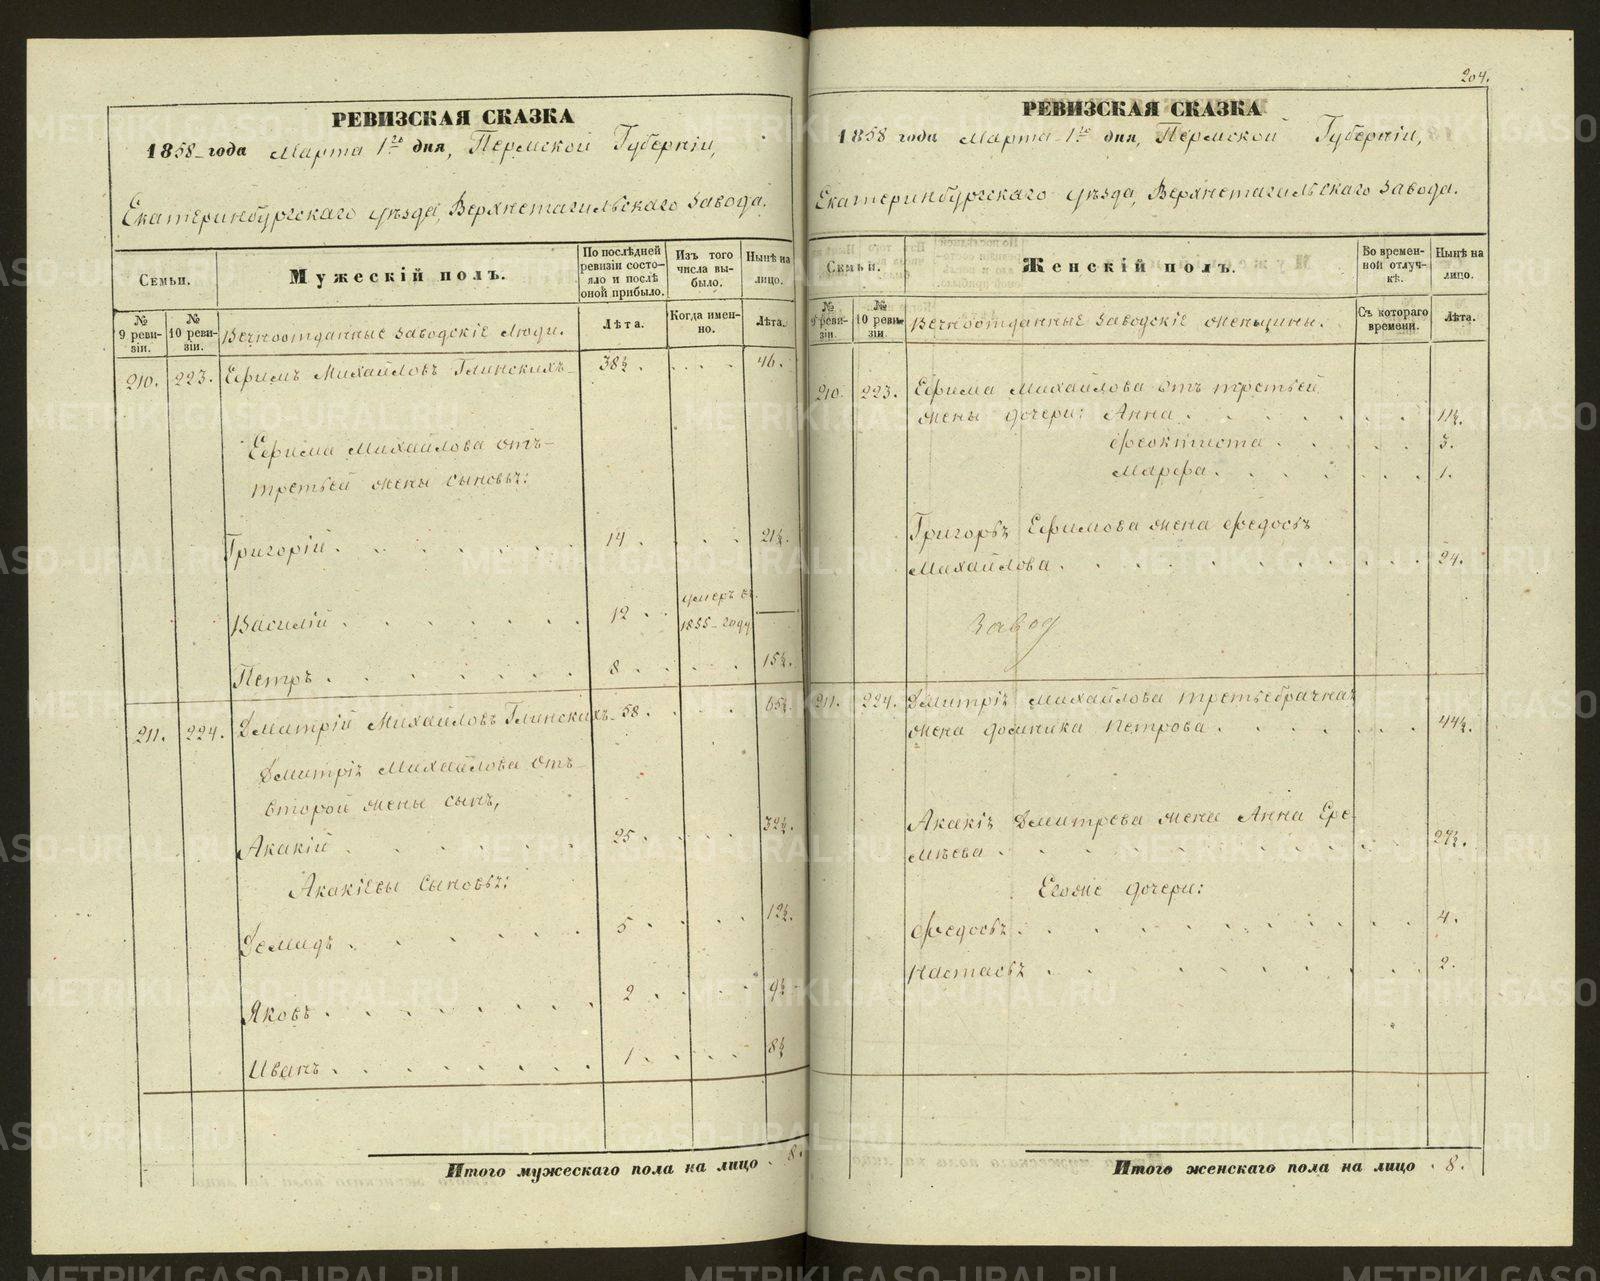 РЕВИЗСКАЯ СКАЗКА
1858 года Марта 1го дня, Пермской Губерніи,
Екатеринбургскаго уѣзда, Верхнетагильскаго завода.
Семьи.
Мужескій полъ.
По послѣдней ревизіи состояло и послѣ оной прибыло.
Изъ того числа выбыло.
Нынѣ на лицо.
№ 9 ревизіи.
№ 10 ревизіи.
Вечноотданные заводскіе люди.
Лѣта.
Когда именно.
Лѣта.
210. 223. Ефимъ Михайловъ Глинскихъ 38½ . . . . . 46.
Ефима Михайлова отъ
третьей жены сыновья:
Григорій . . . . . . . 14 . . . . 21½.
Василій . . . . . . . 12 . . умеръ въ 1855 году —
Петръ . . . . . . . 8 . . . . 15½.
211. 224. Дмитрій Михайловъ Глинскихъ 58 . . . . 65½.
Дмитрія Михайлова отъ
второй жены сынъ,
Акакій . . . . . . 25 . . . . 32½.
Акакіевы сыновья:
Демидъ . . . . . . 5 . . . . 12½.
Яковъ . . . . . . . 2 . . . . 9½
Иванъ . . . . . . . 1 . . . . 8½
Итого мужескаго пола на лицо . 8.
204.
РЕВИЗСКАЯ СКАЗКА
1858 года Марта 1го дня, Пермской Губерніи,
Екатеринбургскаго уѣзда, Верхнетагильскаго завода.
Семьи.
Женскій полъ.
Во временной отлучкѣ.
Нынѣ на лицо.
№ 9 ревизіи.
№ 10 ревизіи.
Вечноотданные заводскіе женщины.
Съ котораго времени.
Лѣта.
210. 223. Ефима Михайлова отъ третьей
жены дочери: Анна . . . . . . . 11½.
Феоктиста . . . . . . 3.
Марфа . . . . . . . 1.
Григорья Ефимова жена Федосья
Михайлова . . . . . . . . . . . 24.
Завод
211. 224. Дмитрія Михайлова третьебрачная
жена Домника Петрова . . . . . . . 44½.
Акакія Дмитрева жена Анна Ере-
мѣева . . . . . . . . . . . 27½.
Егожъ дочери:
Федосья . . . . . . . . . . 4.
Настасья . . . . . . . . . . 2.
Итого женскаго пола на лицо . 8.
METRIKI.GASO-URAL.RU